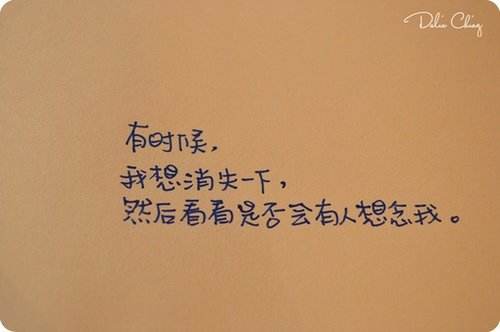 Delia Ching
有时候，
我想消失一下，
然后看看是否会有人想念我。